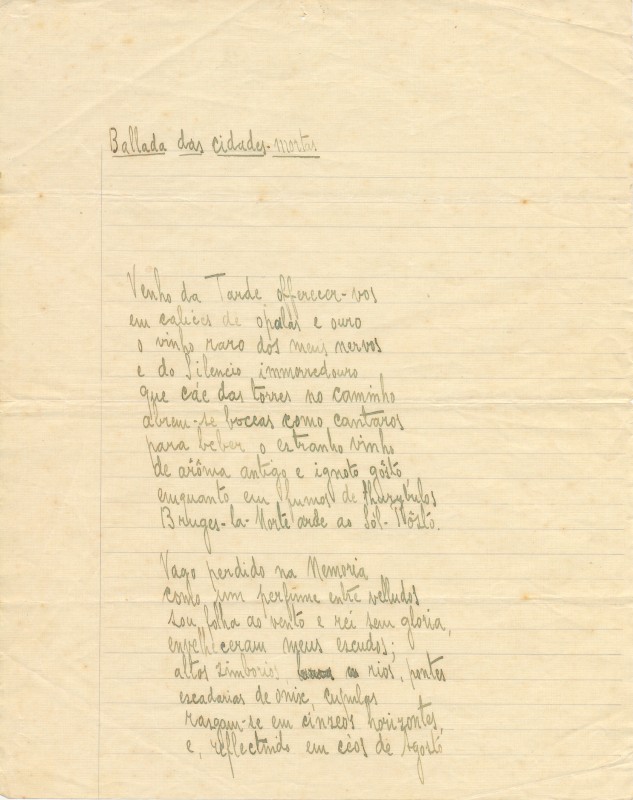 Ballada das cidades-mortas
Venho da Tarde offerecer-vos
em calices de opalas e ouro
o vinho raro dos meus nervos
e do Silencio immorredouro
que cáe das torres no caminho
abrem-se boccas como cantaros
para beber o estranho vinho
de arôma antigo e ignoto gôsto
emquanto em fumos de thurybulos
Bruges-la-Morte arde ao Sól-Pôsto.
Vago perdido na Memoria
como um perfume entre velludos
sou folha ao vento e rei sem gloria,
envelheceram meus escudos;
altos zimborios, rios, pontes
escadarias de onix, cupulas
rasgam-se em cinzeos horizontes
e, reflectindo em céos de Agosto